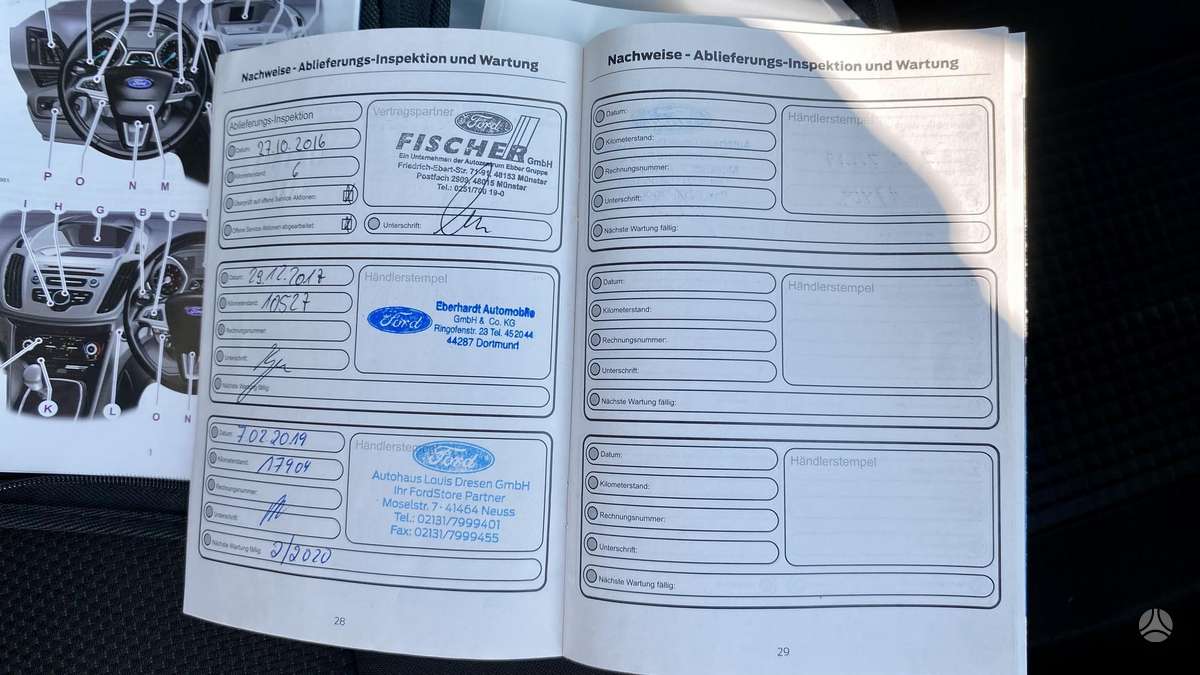 Nachweise - Ablieferungs-Inspektion und Wartung
Ablieferungs-Inspektion
Datum: 27.10.2016
Kilometerstand: 6
Überprüft auf offene Service Aktionen:
Offene Service Aktionen abgearbeitet:
Vertragspartner
Ford
FISCHER GmbH
Ein Unternehmen der Autozentrum Ebber Gruppe
Friedrich-Ebert-Str. 71-91, 48153 Münster
Postfach 2909, 48015 Münster
Tel.: 0251/700 19-0
Unterschrift:
Datum: 29.12.2017
Kilometerstand: 10527
Rechnungsnummer:
Unterschrift:
Nächste Wartung fällig:
Händlerstempel
Ford
Eberhardt Automobile
GmbH & Co. KG
Ringofenstr. 23 Tel. 452044
44287 Dortmund
Datum: 7.02.2019
Kilometerstand: 17904
Rechnungsnummer:
Unterschrift:
Nächste Wartung fällig: 2/2020
Händlerstempel
Ford
Autohaus Louis Dresen GmbH
Ihr FordStore Partner
Moselstr. 7 - 41464 Neuss
Tel.: 02131/7999401
Fax: 02131/7999455
28
Nachweise - Ablieferungs-Inspektion und Wartung
Datum:
Kilometerstand:
Rechnungsnummer:
Unterschrift:
Nächste Wartung fällig:
Händlerstempel
Datum:
Kilometerstand:
Rechnungsnummer:
Unterschrift:
Nächste Wartung fällig:
Händlerstempel
Datum:
Kilometerstand:
Rechnungsnummer:
Unterschrift:
Nächste Wartung fällig:
Händlerstempel
29
Ford
P O N M
I H G B C
K L O N
1